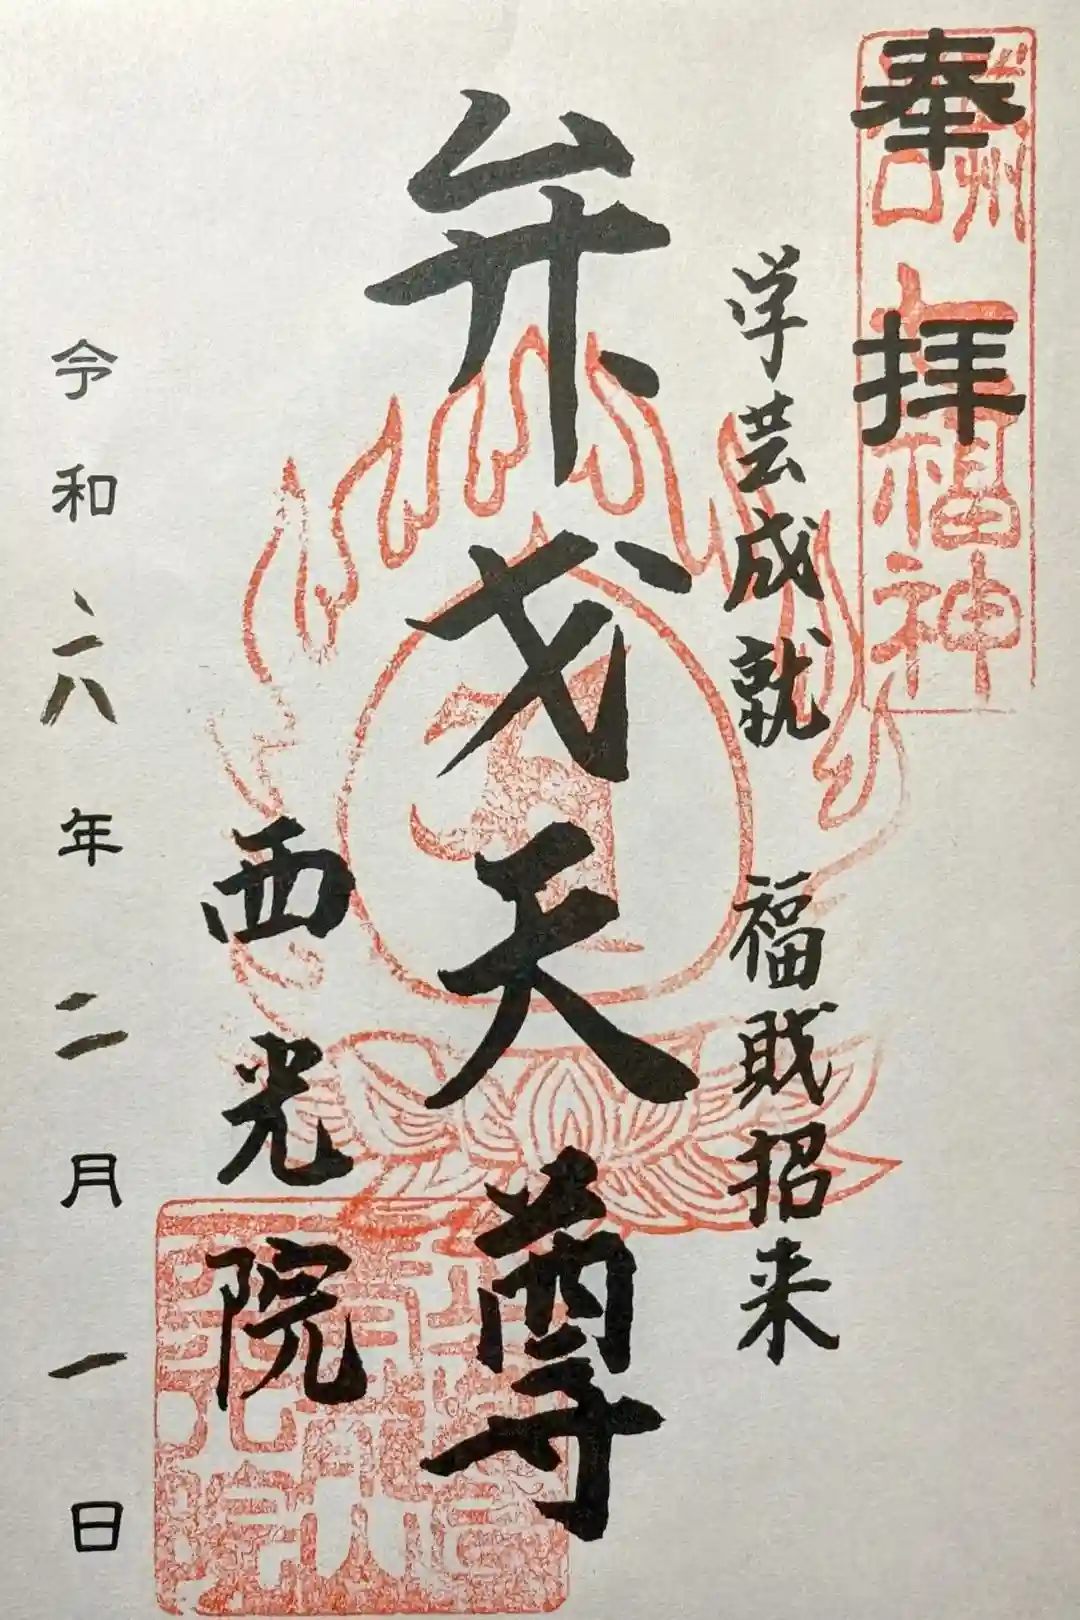 奉拝
学芸成就 福財招来
弁才天尊
西光院
令和六年二月一日
七福神